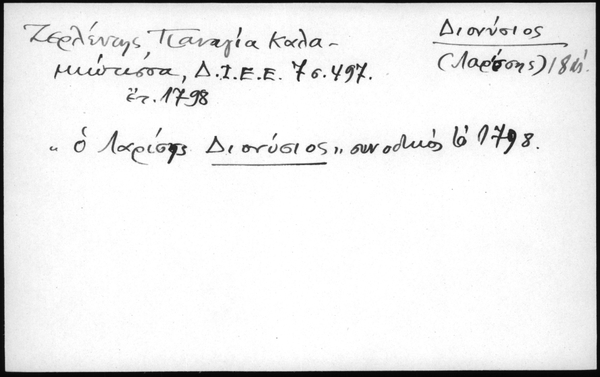 Ζερλέντης, Παναγία Καλα-
μιώτισσα, Δ.Ι.Ε.Ε. 7 σ. 497.
ἔτ. 1798
Διονύσιος
(Λαρίσης) 18
"ὁ Λαρίσης Διονύσιος" συνοδικός 1798.